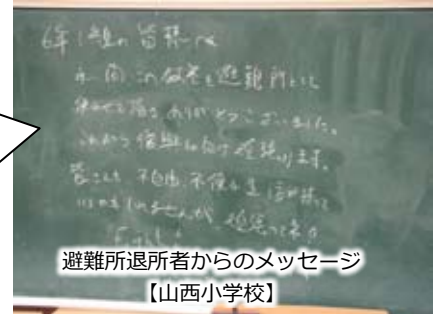 6年1組の皆様へ
永い間この教室を避難所として
使わせて頂き ありがとうございました。
これから復興に向け頑張ります。
皆さんも 不自由、不便な生活が
避難所退所者からのメッセージ
【山西小学校】